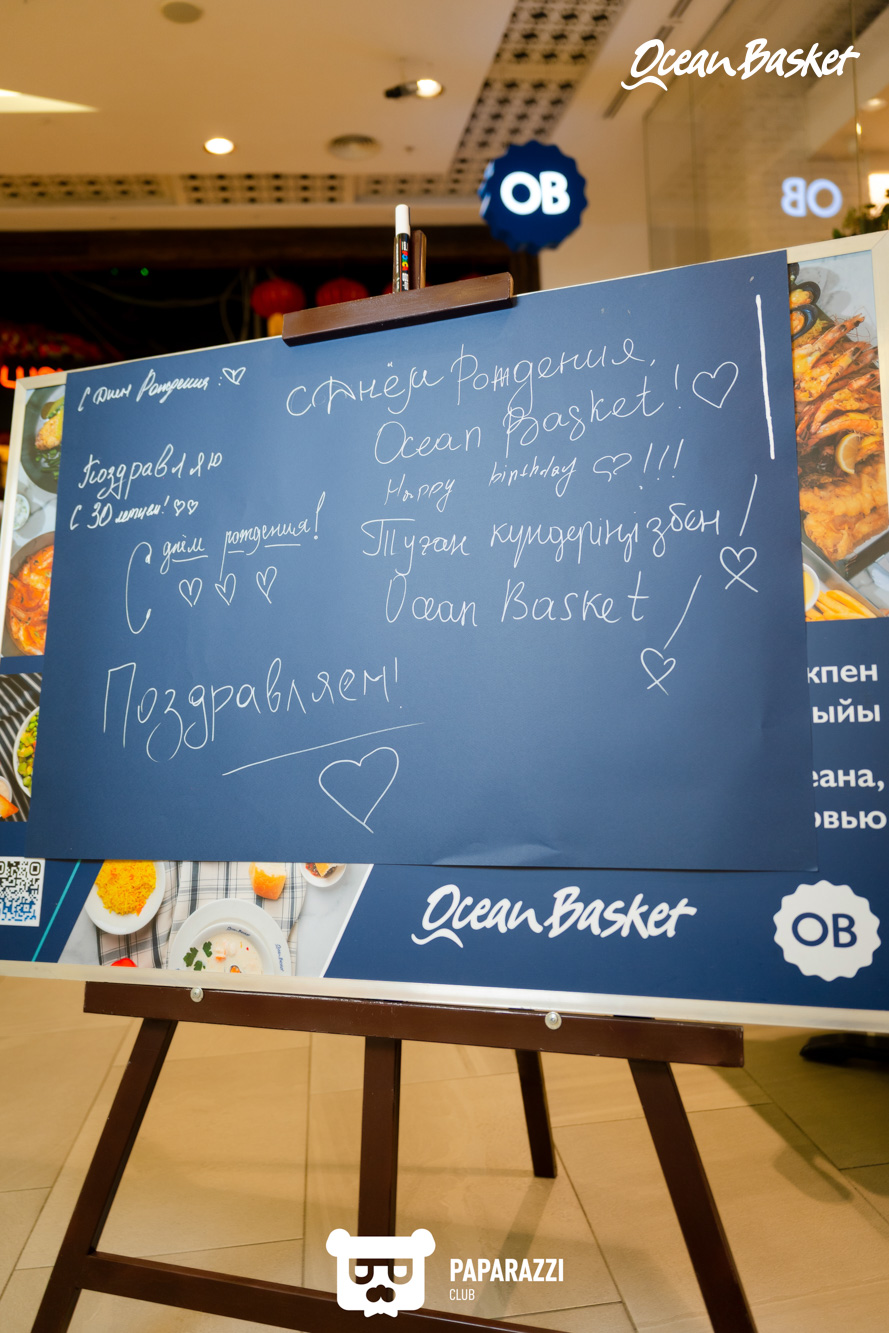 Ocean Basket
OB
OB
С Днем Рождения!
С Днём Рождения,
Ocean Basket!
Happy birthday !!!
Туған күндеріңізбен!
Ocean Basket!
Поздравляю
С 30 летием!
С днём рождения!
Поздравляем!
кпен
ыйы
еана,
овью
Ocean Basket
OB
PAPARAZZI
CLUB